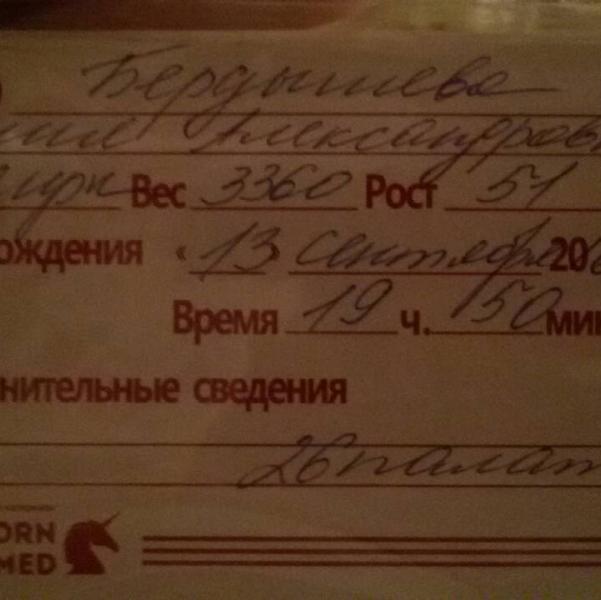 Бердышева
Александров
Вес 3360 Рост 51
ождения «13 сентября 20
Время 19 ч. 50 мин
нительные сведения
26 палат
ORN
MED